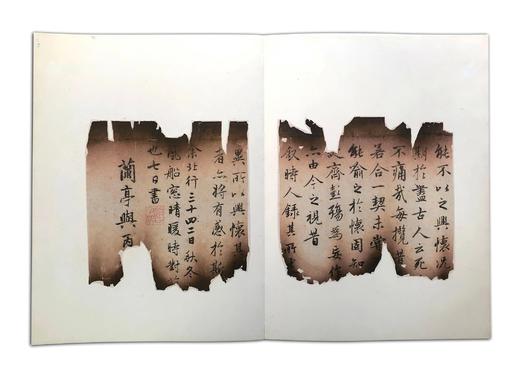 能不以之興懷况
期於盡古人云死
不痛哉每攬昔
若合一契未嘗
能喻之於懷固知
齊彭殤爲妄作
亦由今之視昔
叙時人錄其所
異所以興懷其
者亦將有感於斯
余北行三十二日秋冬
風船窓晴暖時對
也七日書
蘭亭與丙